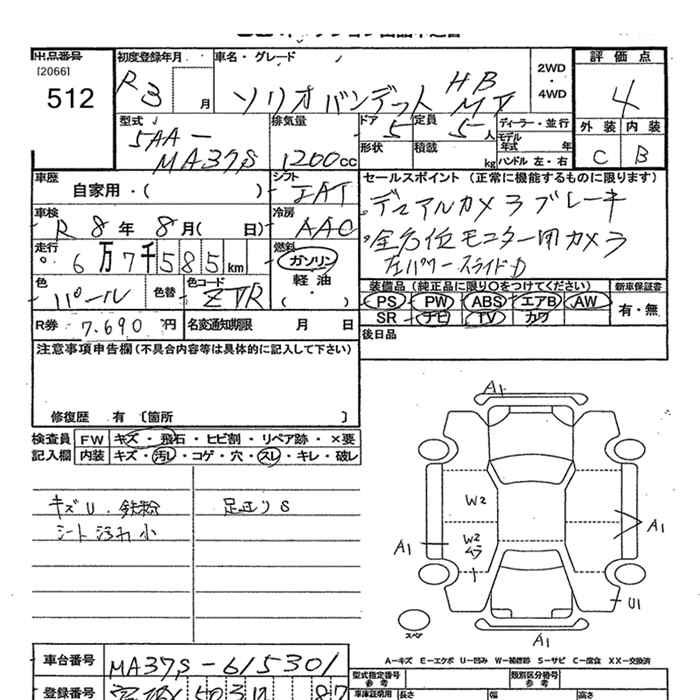 出品番号
[2066]
512
初度登録年月
R 3 月
車名・グレード
ソリオバンデット HB MV
2WD
・
4WD
評価点
4
外装 内装
C B
型式
5AA-
MA37S
排気量
1200cc
ドア 5
定員 5人
ディーラー・並行
モデル年式 年
形状
積載 kg
ハンドル 左・右
車歴
自家用・( )
シフト
IAT
セールスポイント (正常に機能するものに限ります)
・デュアルカメラブレーキ
・全方位モニター用カメラ
左パワースライドD
車検
R 8年 8月( 日)
冷房
AAC
走行
6万7千585km
燃料
ガソリン
軽油
・( )
色
パール
色替
色コード
ZVR
装備品 (純正品に限り○をつけてください)
新車保証書
PS PW ABS エアB AW
SR ナビ TV カワ
有・無
R券 7.690円
名変通知期限 月 日
後日品
注意事項申告欄(不具合内容等は具体的に記入して下さい)
修復歴 有 [箇所 ]
検査員 FW キズ・飛石・ヒビ割・リペア跡・×要
記入欄 内装 キズ・汚レ・コゲ・穴・スレ・キレ・破レ
キズU・鉄粉
シート汚れ小
足廻りS
A1
W2
W2
ムラ
A1
A1
U1
スペア
A1
A-キズ E-エクボ U-凹み W-補修跡 S-サビ C-腐食 XX-交換済
車台番号
MA37S-615301
型式指定番号
参考
類別区分番号
参考
登録番号
503
87
車庫証明用
長さ
幅
高さ